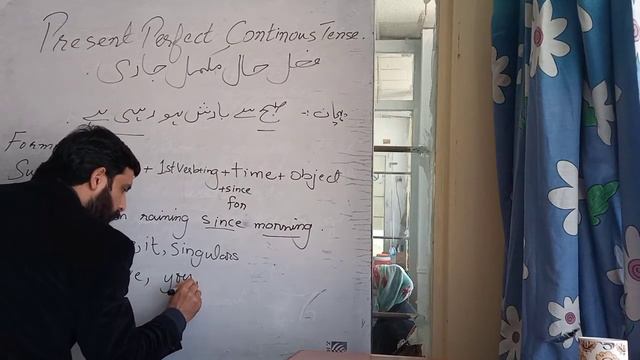 Present Perfect Continous Tense.
فعل حال مکمل جاری.
پہچان:- صبح سے بارش ہو رہی ہے
Form
Su + 1st Verb+ing + time + object
+since
for
raining since morning.
it, Singulars
you